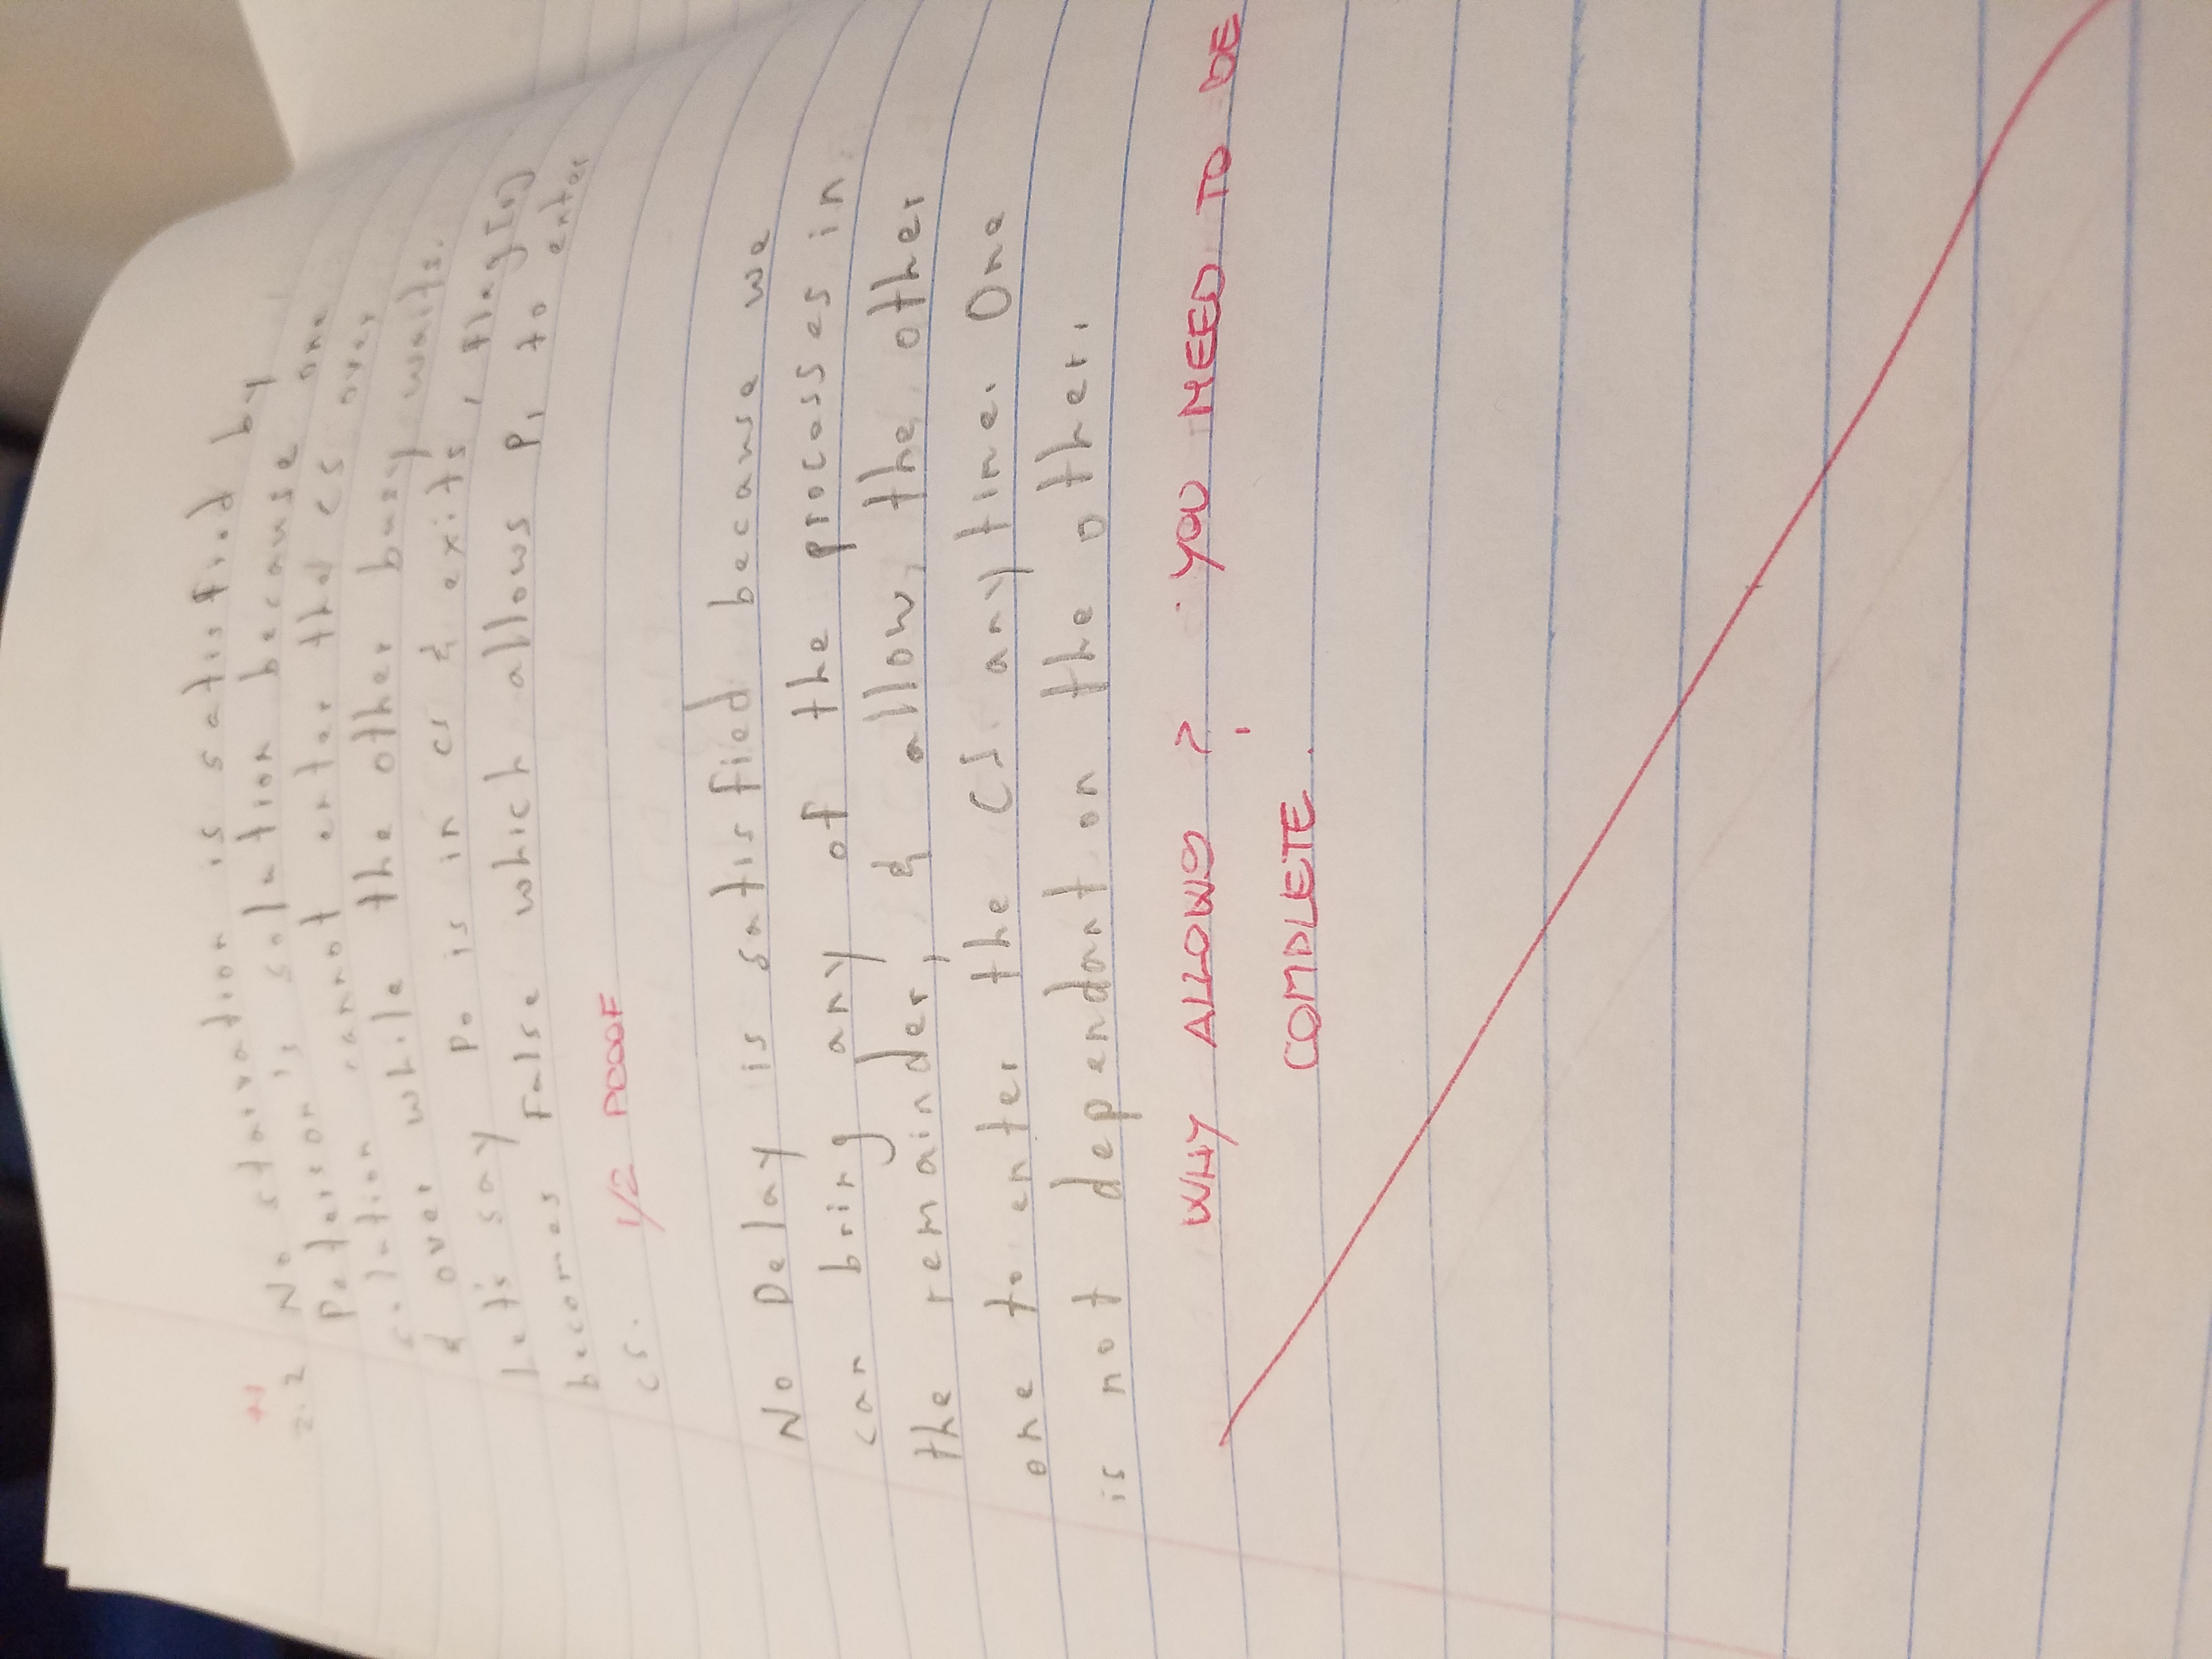 2.2 No starvation is satisfied by
Peterson's solution because one
solution cannot enter the CS over
& over while the other busy waits.
Let's say P0 is in CS & exits, flag[0]
becomes False which allows P1 to enter
CS. 1/2 PROOF
No Delay is satisfied because we
can bring any of the processes in
the remainder, & allow, the other
one to enter the CS. anytime. One
is not dependant on the other.
WHY ALLOWS ? YOU NEED TO BE
COMPLETE.